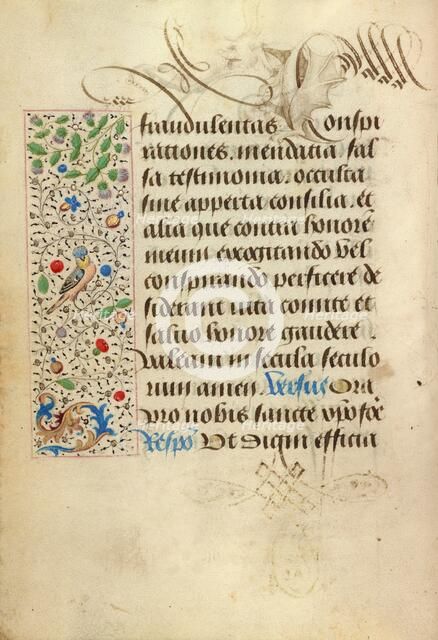 fraudulentas Conspi
rationes. mendatia fal
sa testimonia. occulta
sine apperta consilia. et
alia que contra honore
meum exogitando vel
conspirando perficere de
siderant vita comite et
salvo honore gaudere
valeam in secula seculo
rum amen. Versus Ora
pro nobis sancte xpofore
Respo Ut digni efficia
Heritage